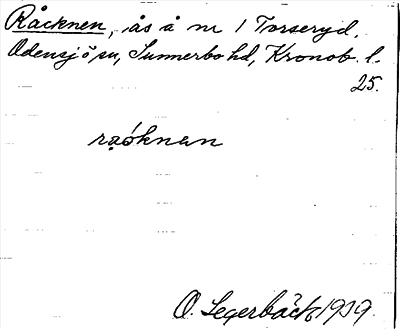 Råcknen, ås å nr 1 Torseryd,
Odensjö sn, Sunnerbo hd, Kronob. l.
25.
raóknan
O. Legerbäck 1919.